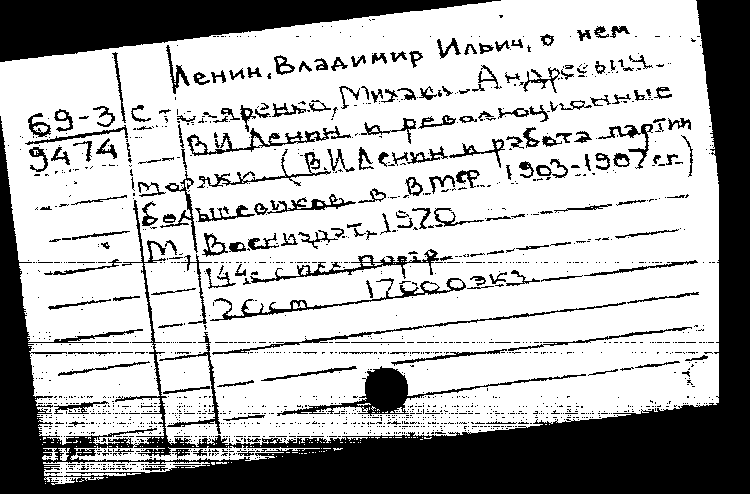 Ленин, Владимир Ильич, о нем
69-3
9474
Столяренко, Михаил Андреевич
В.И. Ленин и революционные
моряки (В.И. Ленин и работа партии
большевиков в ВМФ 1903-1907 гг.)
М, Воениздат, 1970
144 с. с илл, портр
20 cm 17000 экз.